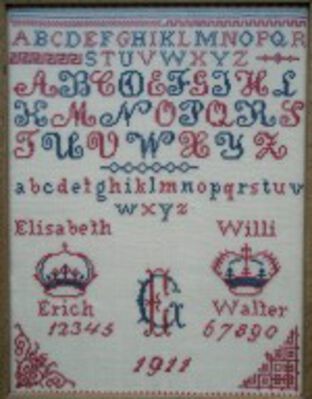 ABCDEFGHIKLMNOPQR
STUVWXYZ
ABCDEFGIHL
KMNOPQRS
TUVWXYZ
abcdefghiklmnopqrstuv
wxyz
Elisabeth Willi
Erich Walter
12345 67890
1911